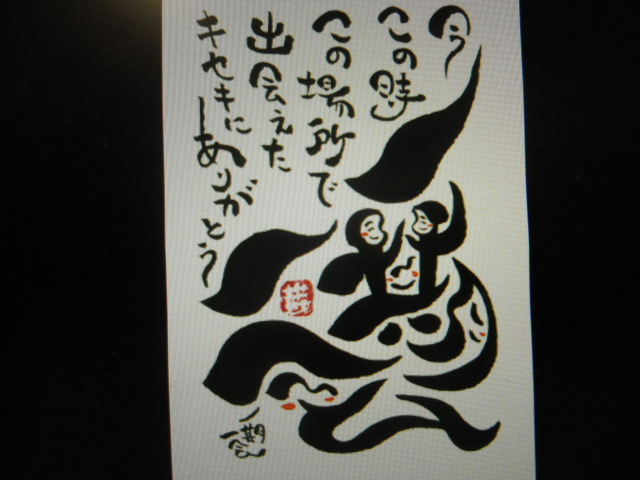 今
この時
この場所で
出会えた
キセキにありがとう
一期一会